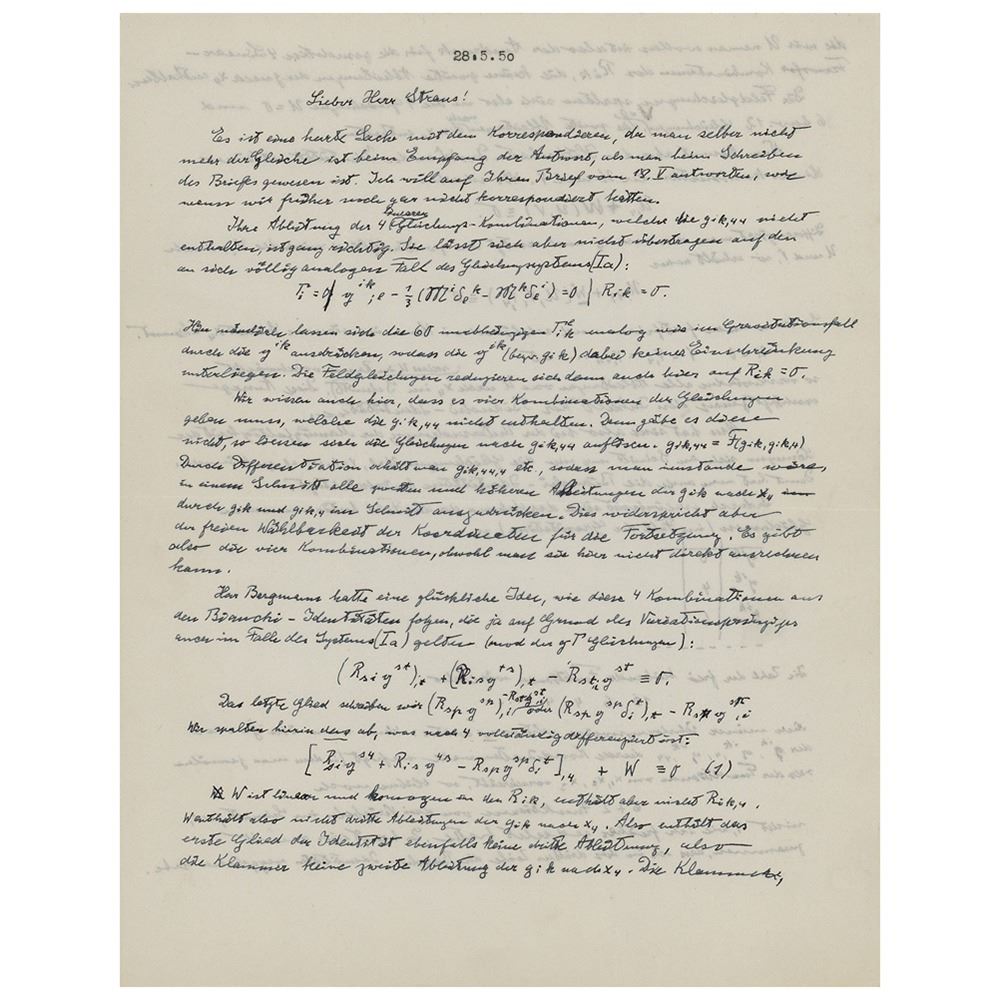 28.5.50
Lieber Herr Straus!
Es ist eine harte Sache mit dem Korrespondieren, da man selber nicht
mehr der Gleiche ist beim Empfang der Antwort, als man beim Schreiben
des Briefes gewesen ist. Ich will auf Ihren Brief vom 18. V antworten, wie
wenn wir früher noch gar nicht korrespondiert hätten.
Ihre Ableitung der 4 linearen Gleichungs-Kombinationen, welche die gik,44 nicht
enthalten, ist ganz richtig. Sie lässt sich aber nicht übertragen auf den
an sich völlig analogen Fall des Gleichungssystems (Ia):
Γi = 0 | 𝔤^ik;l - 1/3 (𝔐^i δl^k - 𝔐^k δl^i) = 0 | Rik = 0.
Hier nämlich lassen sich die 60 unabhängigen Γik^l analog wie im Gravitationsfall
durch die 𝔤^ik ausdrücken, sodass die 𝔤^ik (bezw. gik) dabei keiner Einschränkung
unterliegen. Die Feldgleichungen reduzieren sich dann auch hier auf Rik = 0.
Wir wissen auch hier, dass es vier Kombinationen der Gleichungen
geben muss, welche die gik,44 nicht enthalten. Denn gäbe es diese
nicht, so liessen sich die Gleichungen nach gik,44 auflösen. gik,44 = F(gik, gik,4)
Durch Differentiation erhält man gik,444 etc., sodass man imstande wäre,
in einem Schnitt alle zweiten und höheren Ableitungen der gik nach x4
durch gik und gik,4 im Schnitt auszudrücken. Dies widerspricht aber
der freien Wählbarkeit der Koordinaten für die Fortsetzung. Es gibt
also die vier Kombinationen, obwohl man sie hier nicht direkt ausrechnen
kann.
Herr Bergmann hatte eine glückliche Idee, wie diese 4 Kombinationen aus
den Bianchi-Identitäten folgen, die ja auf Grund des Variationsprinzips
auch im Falle des Systems (Ia) gelten (mod der 𝔤Γ Gleichungen):
(Rsi 𝔤^st),t + (Ris 𝔤^ts),t - Rst,i 𝔤^st ≡ 0.
Das letzte Glied schreiben wir (Rsp 𝔤^sp),i - Rst 𝔤^st,i oder (Rsp 𝔤^sp δi^t),t - Rsp 𝔤^sp,i
Wir spalten hierin das ab, was nach 4 vollständig differenziert ist:
[Rsi 𝔤^s4 + Ris 𝔤^4s - Rsp 𝔤^sp δi^t],4 + W ≡ 0 (1)
W ist linear und homogen in den Rik, enthält aber nicht Rik,4.
W enthält also nicht dritte Ableitungen der gik nach x4. Also enthält das
erste Glied der Identität ebenfalls keine dritte Ableitung, also
die Klammer keine zweite Ableitung der gik nach x4. Die Klammer